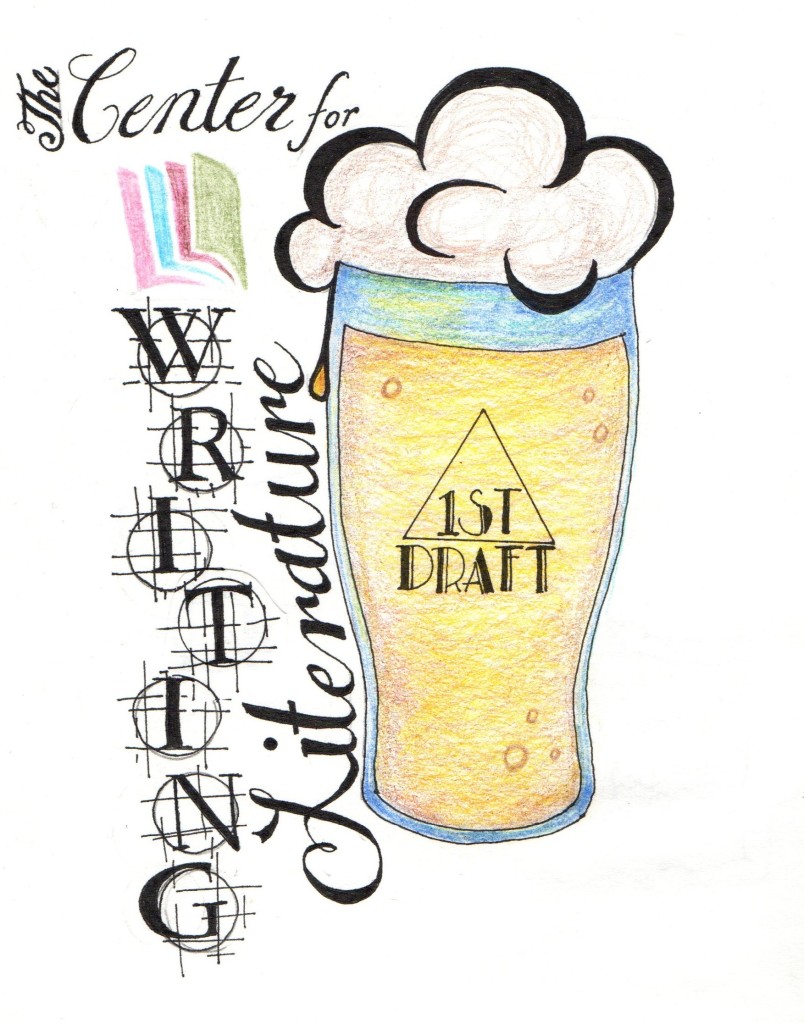 The Center for
WRITING
Literature
1ST
DRAFT